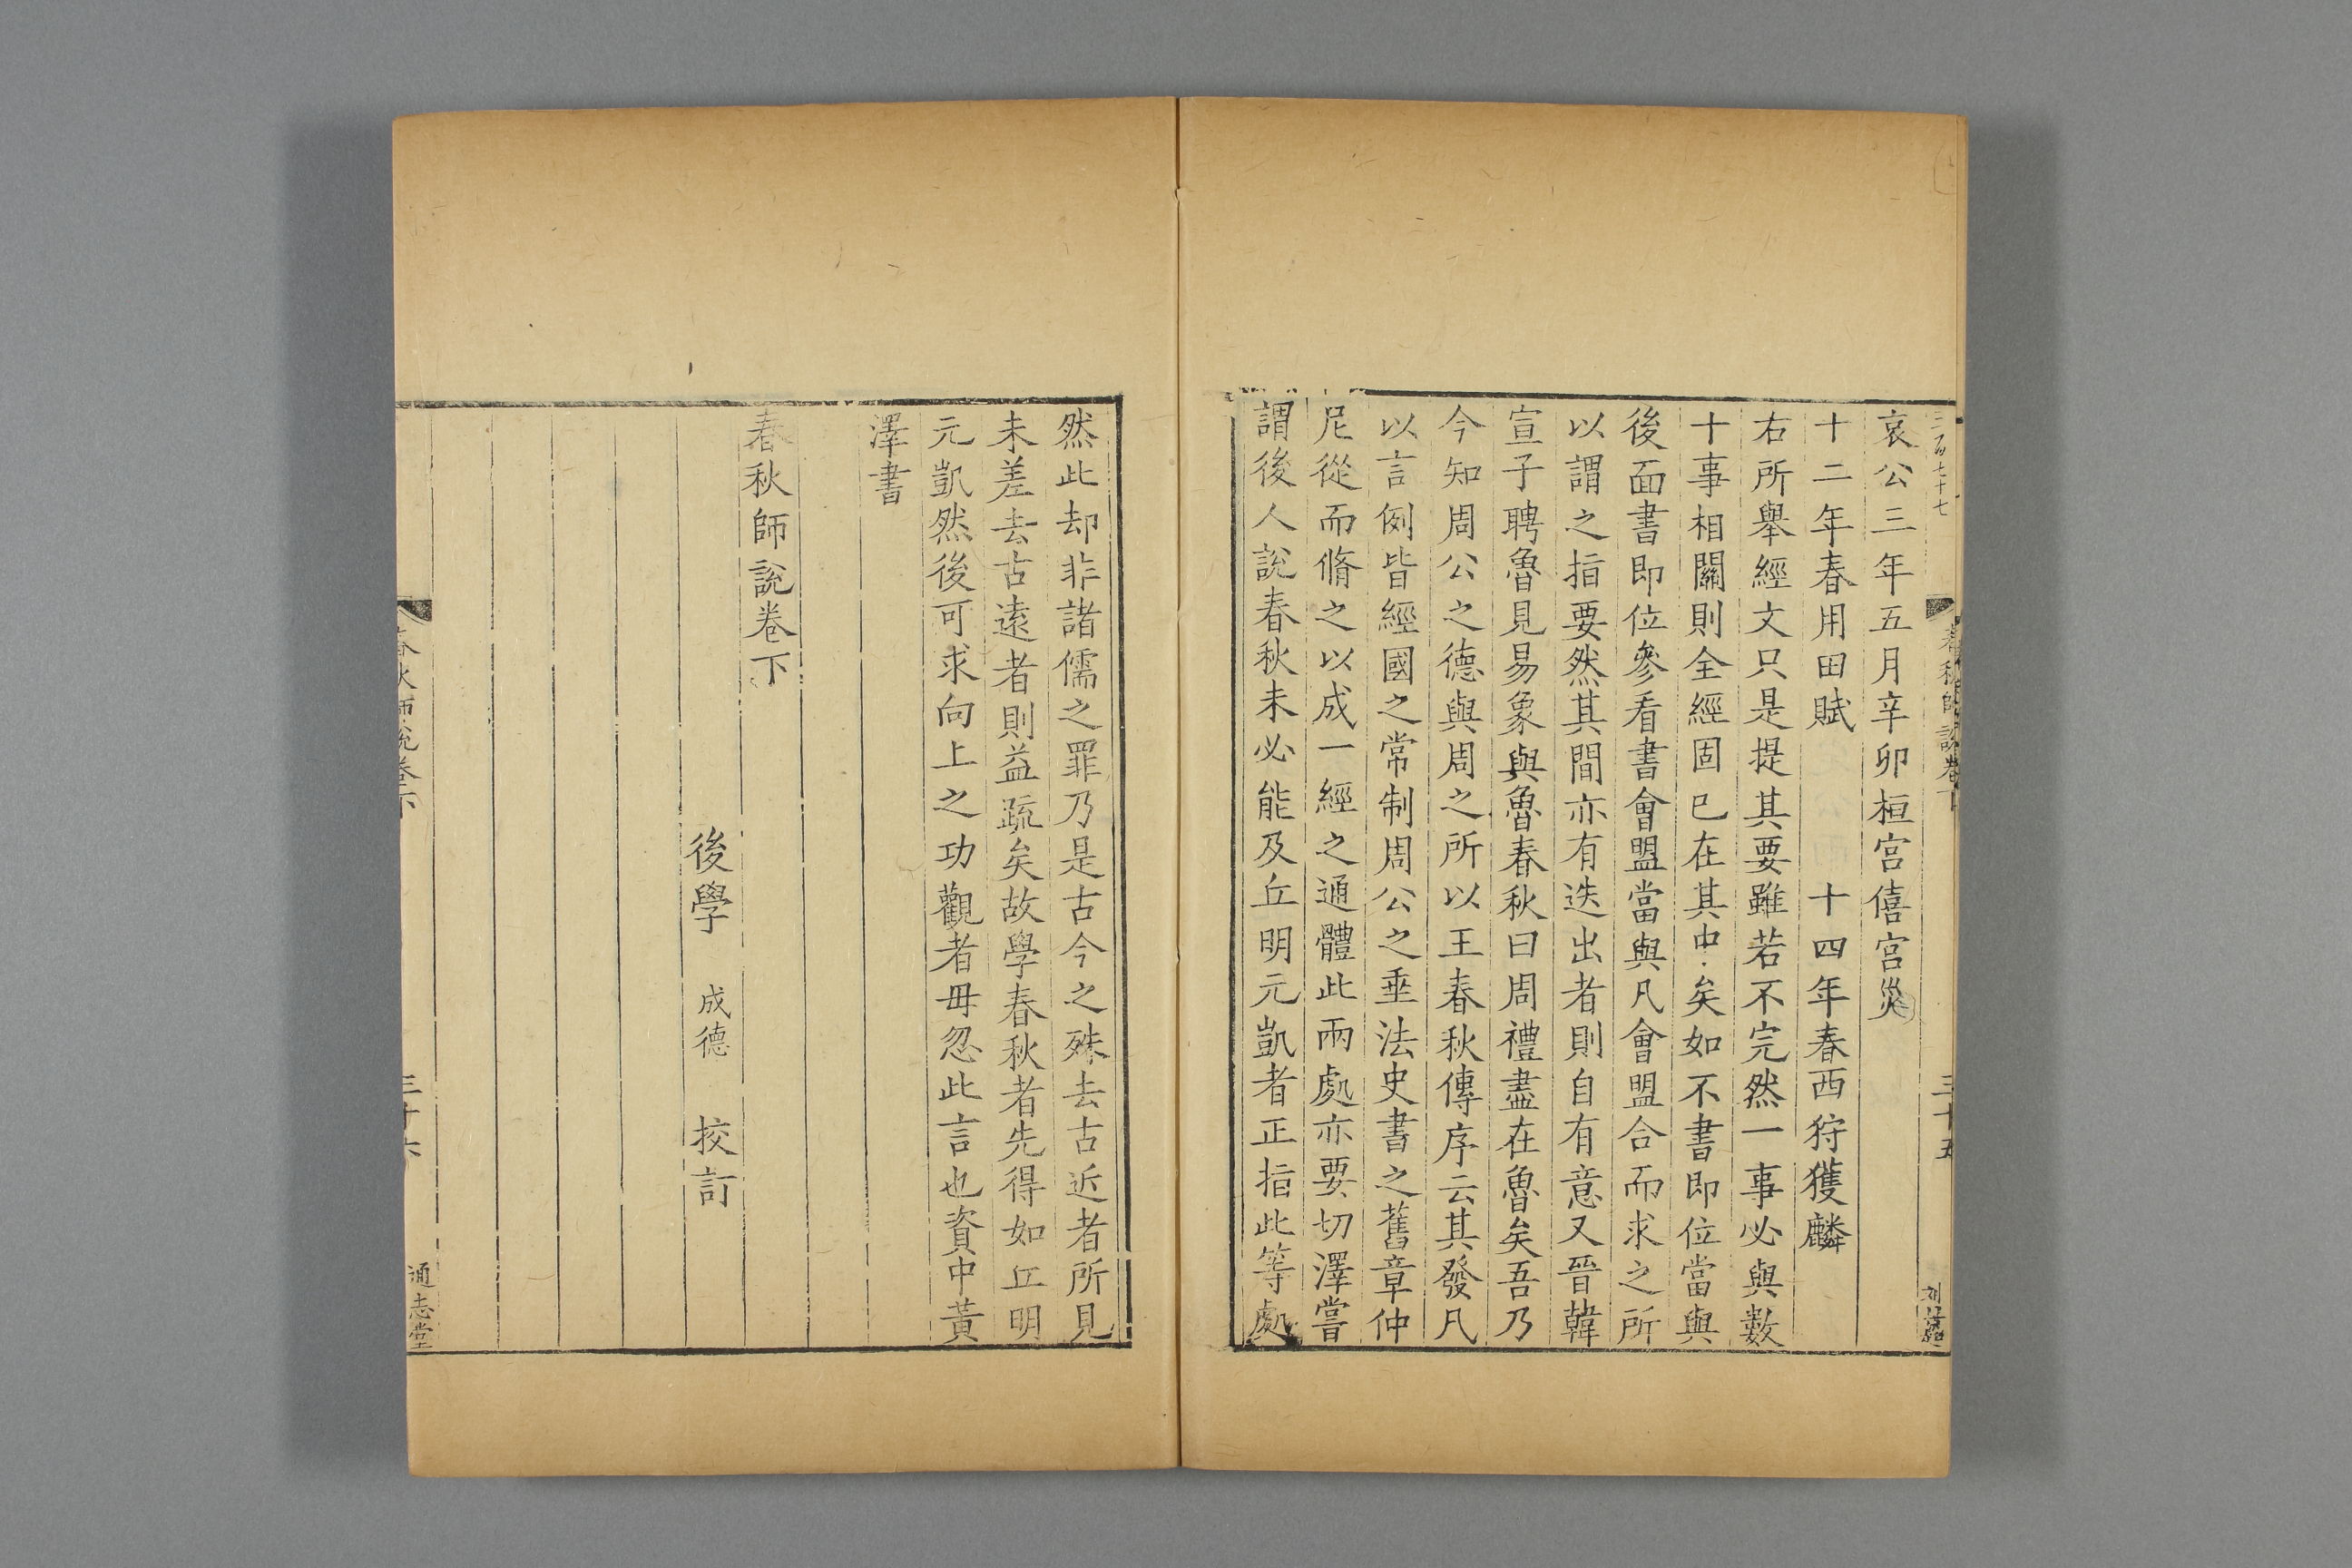 二百七十七
春秋師說卷下
三十五
哀公三年五月辛卯桓宮僖宮災
十二年春用田賦　十四年春西狩獲麟
右所舉經文只是提其要雖若不完然一事必與數
十事相關則全經固已在其中矣如不書即位當與
後面書即位參看書會盟當與凡會盟合而求之所
以謂之指要然其間亦有迭出者則自有意又晉韓
宣子聘魯見易象與魯春秋曰周禮盡在魯矣吾乃
今知周公之德與周之所以王春秋傳序云其發凡
以言例皆經國之常制周公之垂法史書之舊章仲
尼從而脩之以成一經之通體此兩處亦要切澤嘗
謂後人說春秋未必能及丘明元凱者正指此等處
然此却非諸儒之罪乃是古今之殊去古近者所見
未差去古遠者則益疏矣故學春秋者先得如丘明
元凱然後可求向上之功觀者毋忽此言也資中黃
澤書
春秋師說卷下
後學　成德　挍訂
春秋師說卷下
三十六
通志堂